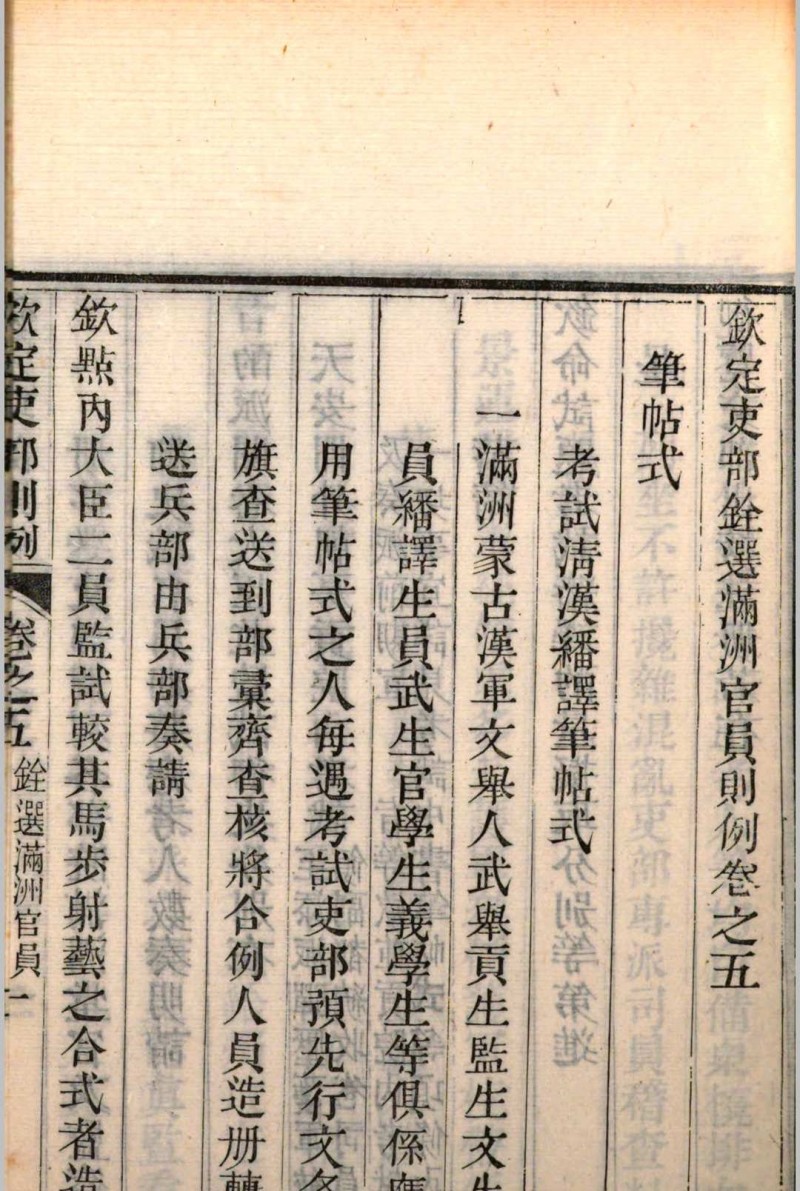 欽定吏部銓選滿洲官員則例卷之五
筆帖式
考試淸漢繙譯筆帖式
一滿洲蒙古漢軍文舉人武舉貢生監生文生
員繙譯生員武生官學生義學生等俱係應
用筆帖式之人每遇考試吏部預先行文各
旗查送到部彙齊查核將合例人員造册轉
送兵部由兵部奏請
欽點內大臣二員監試較其馬步射藝之合式者造
欽定吏部則例 卷之五 銓選滿洲官員 一